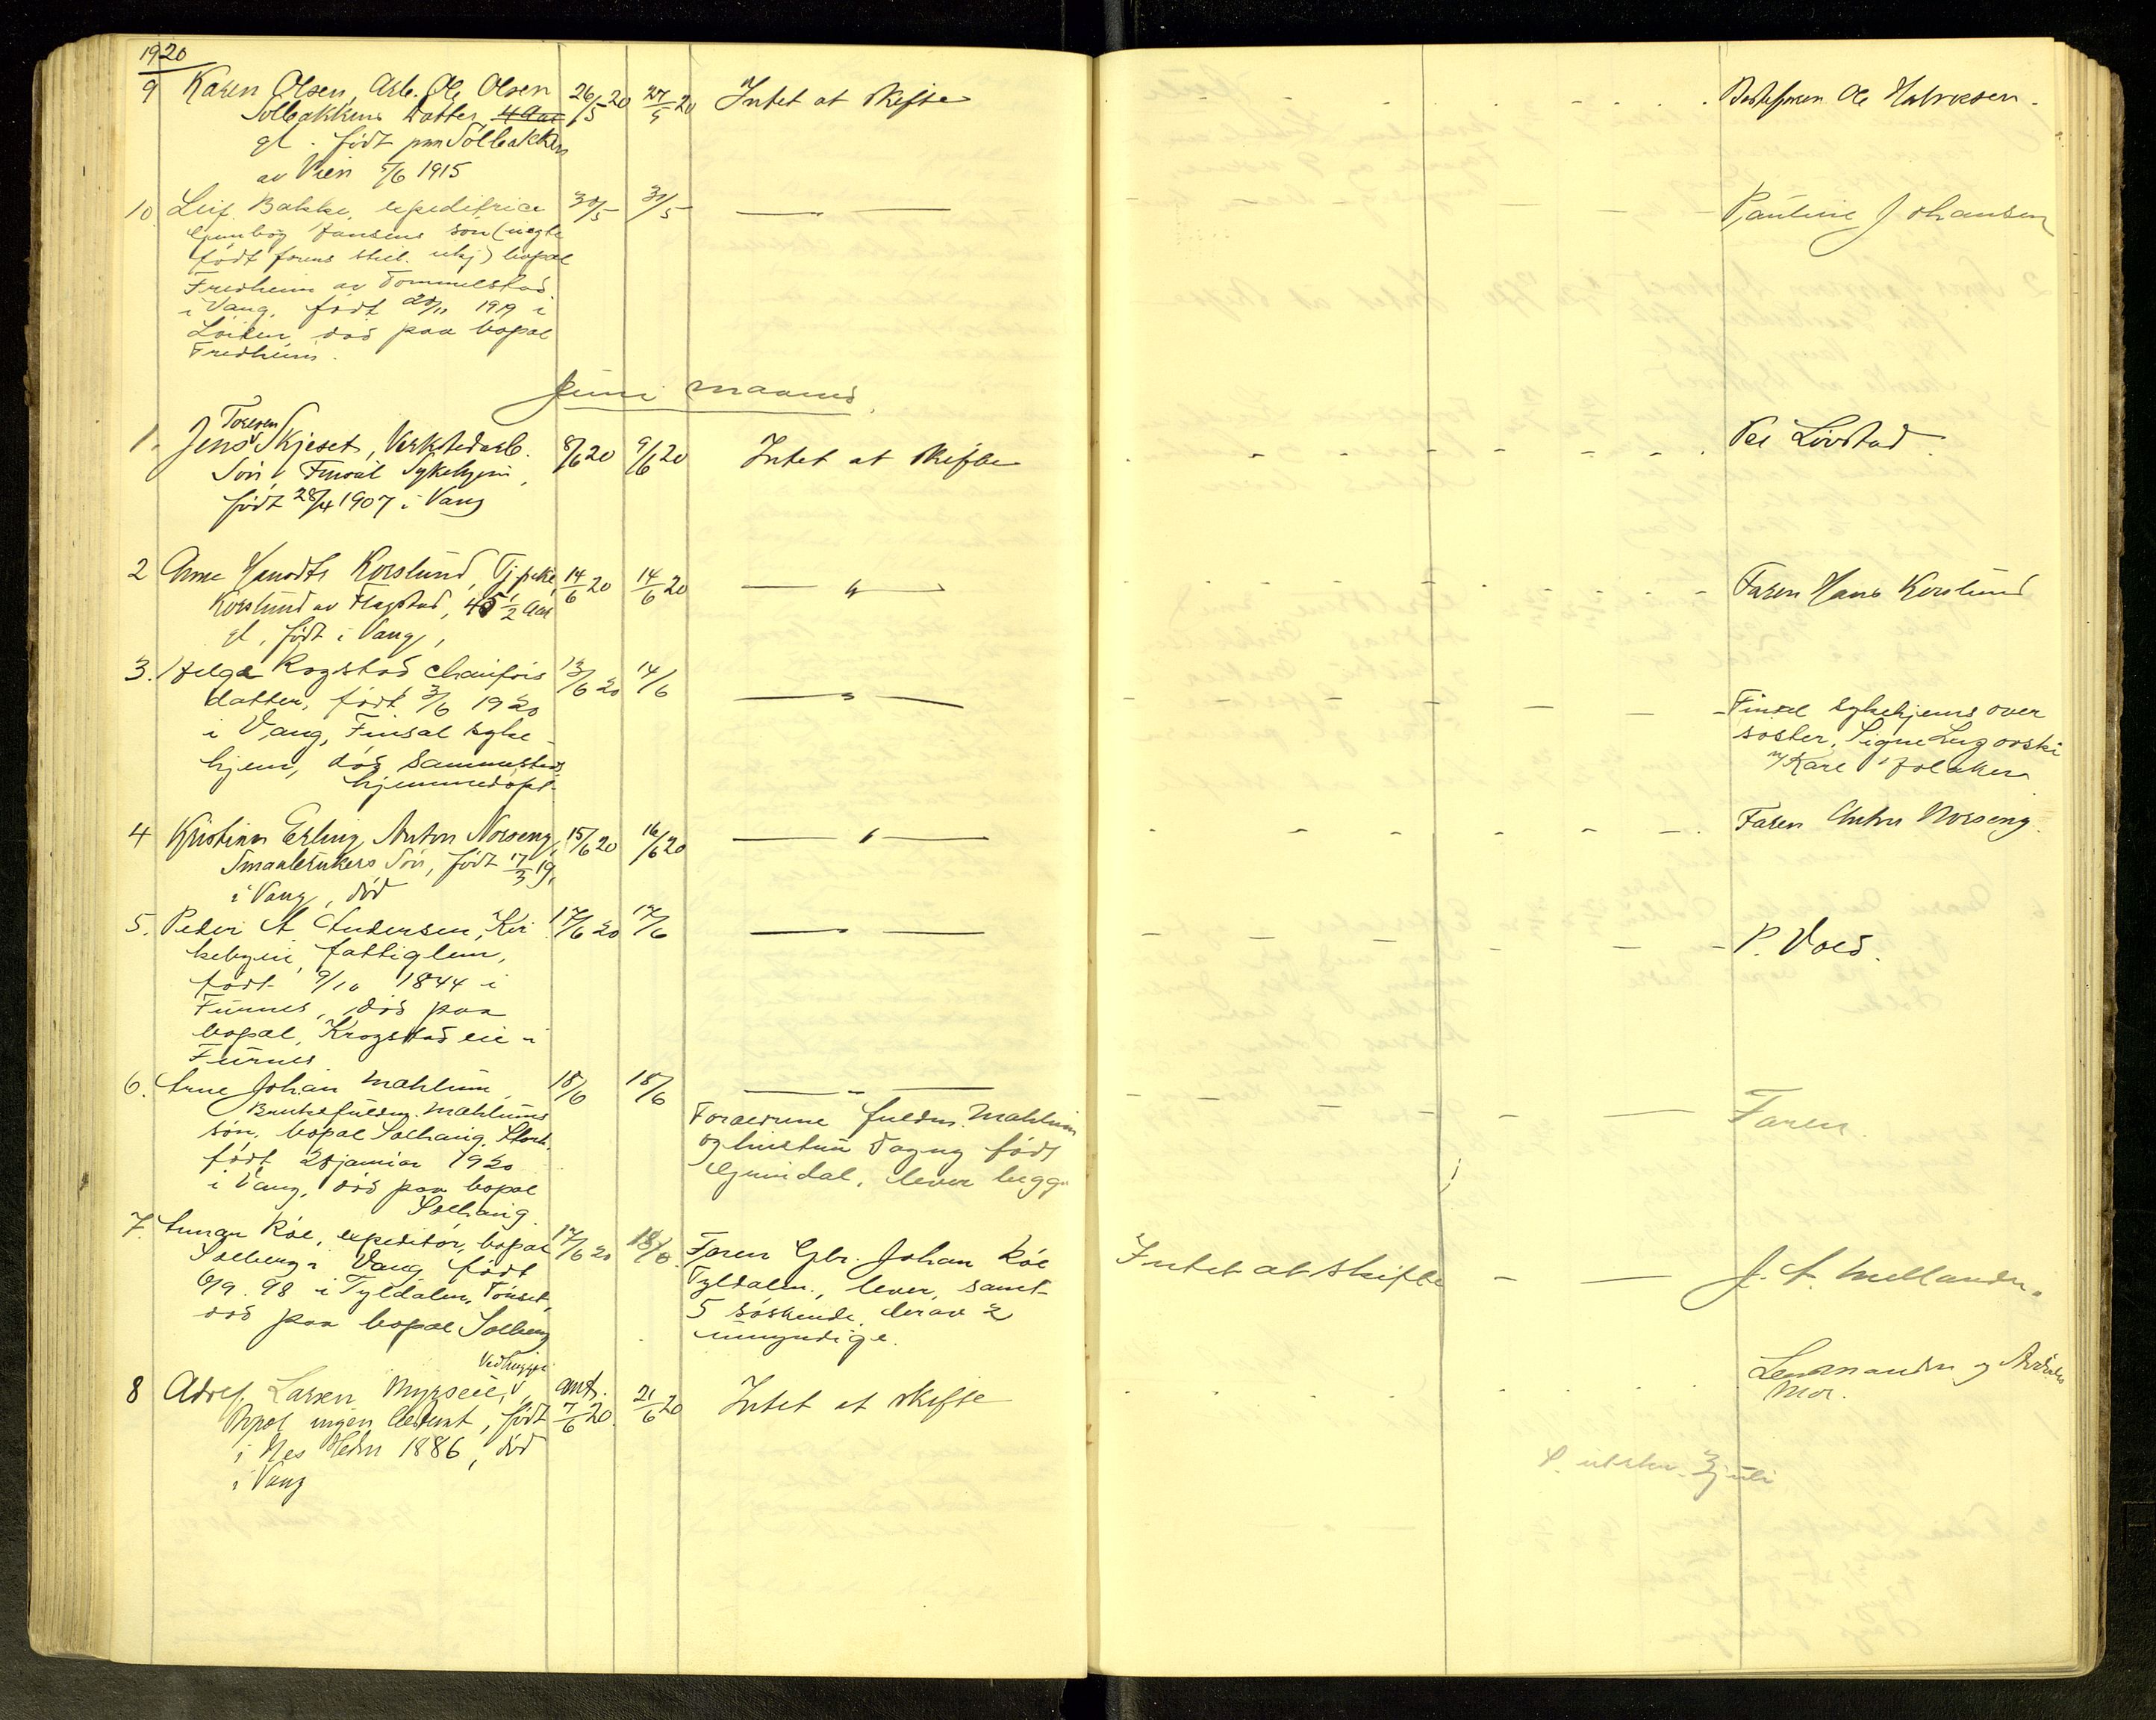 1920
9 Karen Olsen, Arb. Ole Olsen 26/5 20 27/5 20 Intet at skifte Bestefaren Ole Halvorsen.
Solbakkens Datter, 4 Aar
gl. født paa Solbakken
av Vien 5/6 1915
10 Leif Bakke, expeditrice 30/5 31/5 — — Pauline Johansen
Gunborg Jansens søn (uegte
født forens skil. uhj) bopæl
Fredheim av Tommelstad
i Vang, født 20/11 1919 i
Løiten død paa bopæl
Fredheim.
Juni maaned.
1. Jens Toresen Skjeset, Verkstedarb. 8/6 20 9/6 20 Intet at skifte Per Lovstad.
Søn, Finsal Sykehjem,
født 28/4 1907 i Vang
2 Arne Hansen Korslund, Tj 14/6 20 14/6 20 — " — Faren Hans Korslund
Korslund av Flagstad, 45 1/2 Aar
gl, født i Vang,
3. Helga Rogstad chauførs 13/6 20 14/6 — " — Finsal sykehjems over
datter, født 3/6 1920 søster, Signe
i Vang, Finsal syke v/ Kare
hjem, død sammesteds
hjemmedøpt.
4 Kristian Erling Anton Norseng, 15/6 20 16/6 20 — " — Faren Anton Norseng.
Smaabrukers Søn, født 17/3 19,
i Vang, død
5. Peder A Andersen, Kir 17/6 20 17/6 — " — P. Vold.
kebyen, fattiglem,
født 9/10 1844 i
Furnes, død paa
bopæl, Krogstad eie i
Furnes
6. Arne Johan Mæhlum 18/6 18/6 — " — Faren.
Bruksfuldm. Mæhlums Forældrene fuldm. Mæhlum
søn, bopæl Solhaug, Storh. og hustru Dagny født
født 28 januar 1920 Grindal, lever begge
i Vang, død paa bopæl
Solhaug.
7. Gunnar Røe, expeditør, bopæl 17/6 20 18/6 Faren Gbr. Johan Røe Intet at skifte — — J. A. Mellander.
Solberg i Vang født Tyldalen, lever, samt
6/9. 98 i Tyldalen, Tønset, 5 søskende, derav 2
død paa bopæl Solberg umyndige.
Vedhugger
8 Adolf Larsen Myrseie, ant. 7/6 20 21/6 20 Intet at skifte Lensmanden og
Bopæl ingen bestemt, født Mor.
i Nes Hedm 1886, død
i Vang
S. utskr. 3 juli